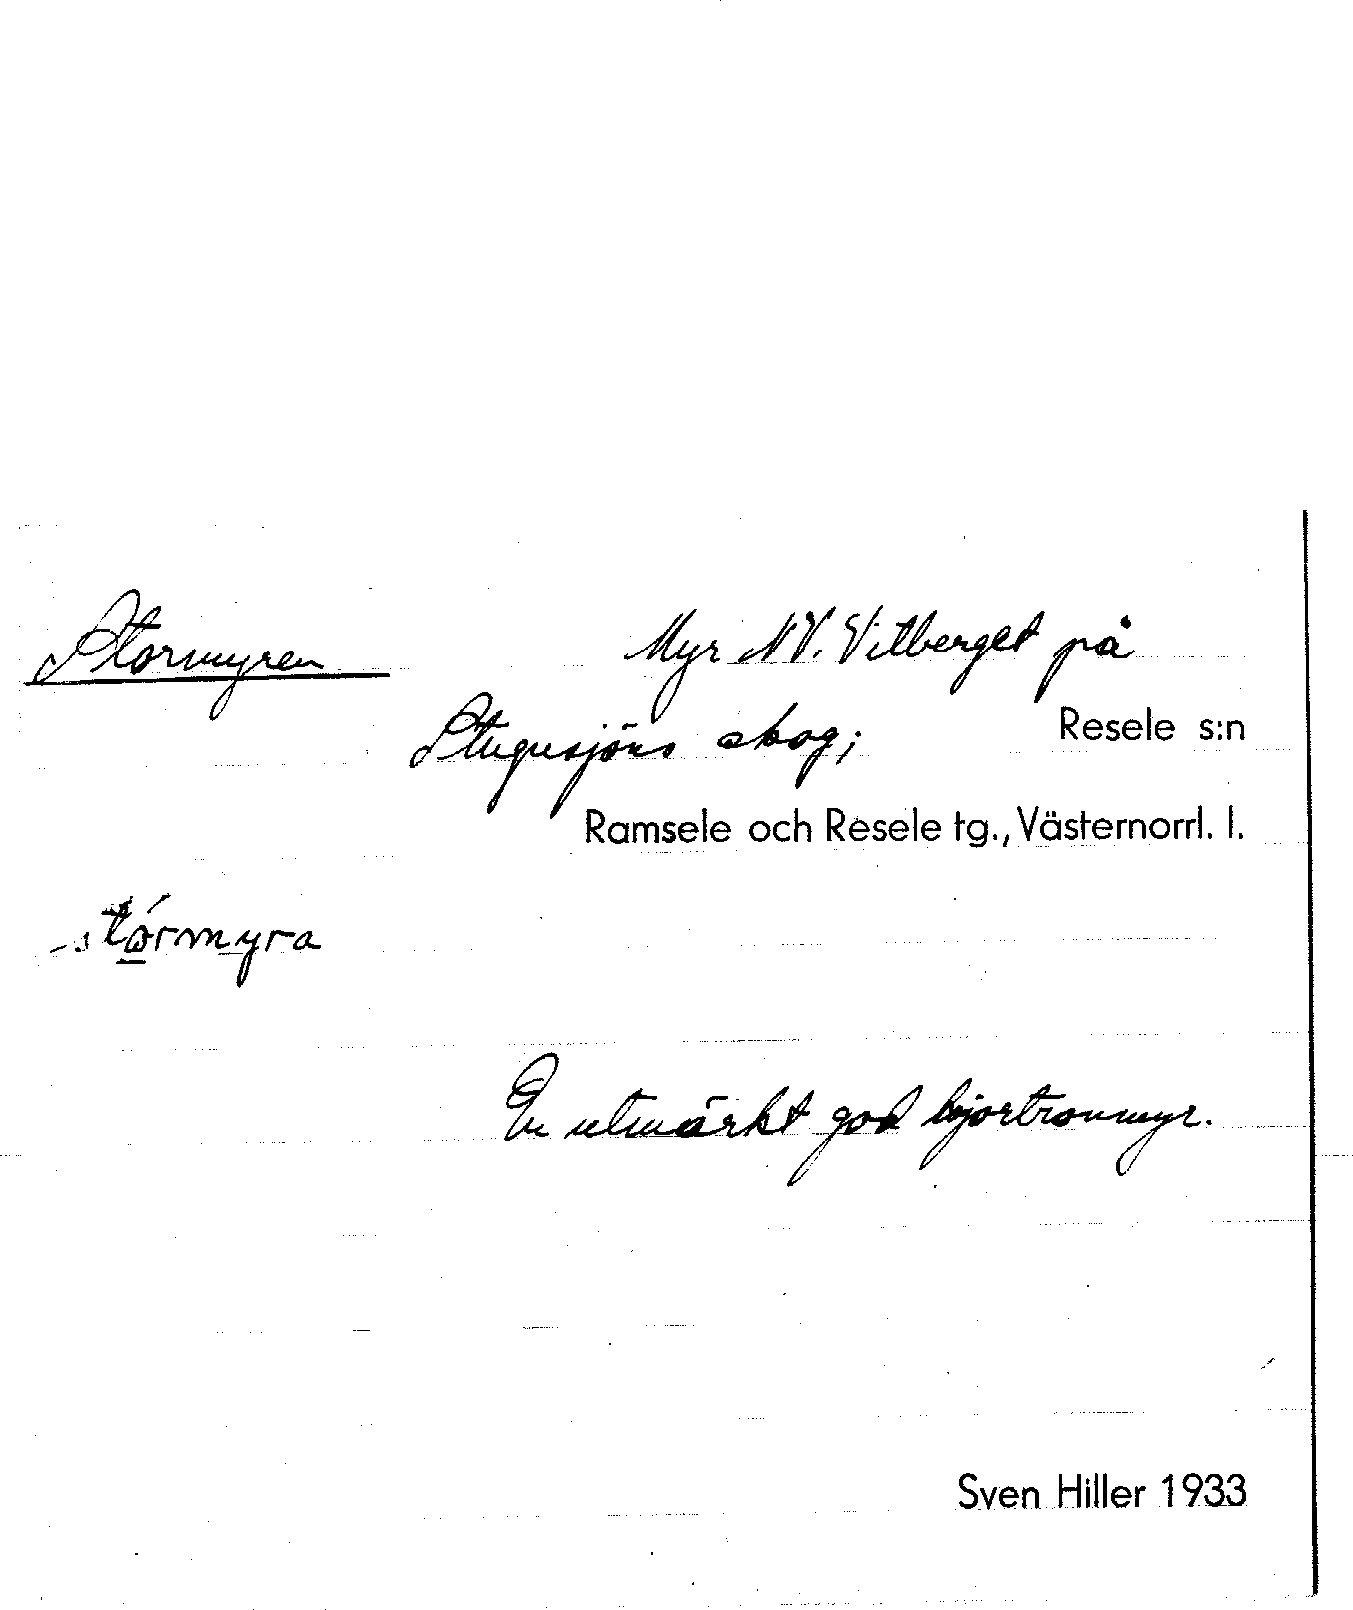 Stormyren Myr NV. Vitberget på
Stugusjöns skog; Resele s:n
Ramsele och Resele tg., Västernorrl. l.
-stórmyra
En utmärkt god hjortronmyr.
Sven Hiller 1933